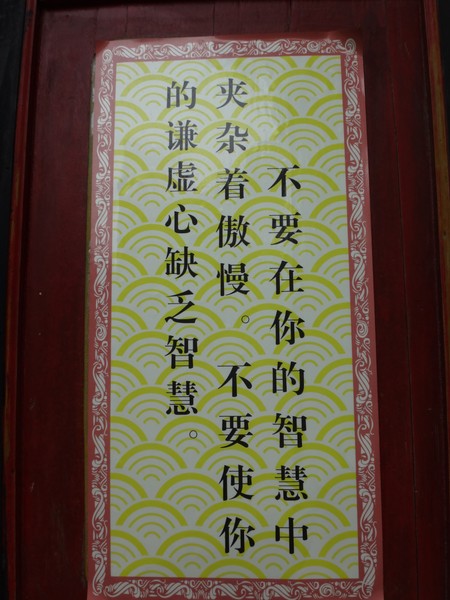 不要在你的智慧中
夹杂着傲慢。不要使你
的谦虚心缺乏智慧。